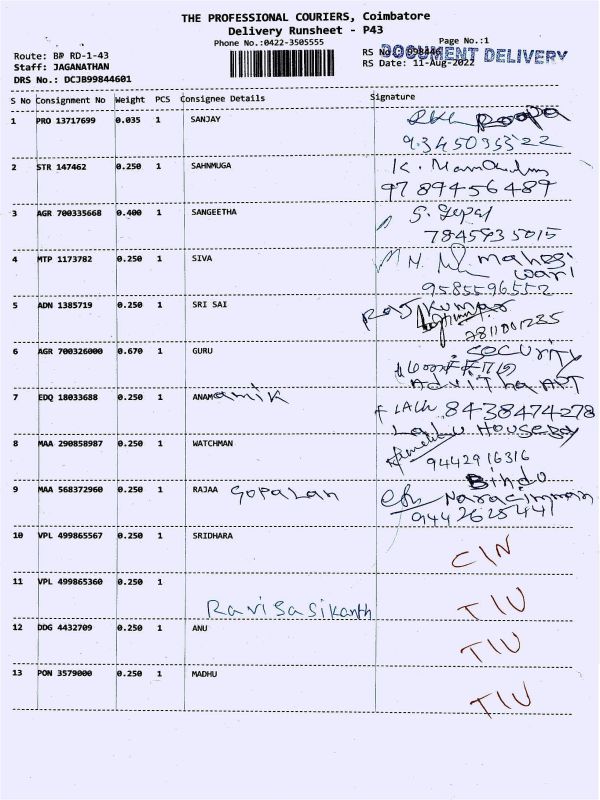 THE PROFESSIONAL COURIERS, Coimbatore
Delivery Runsheet - P43
Phone No.:0422-3505555
Page No.:1
Route: BP RD-1-43
RS No.: 998446
DOCUMENT DELIVERY
Staff: JAGANATHAN
RS Date: 11-Aug-2022
DRS No.: DCJB99844601
S No Consignment No Weight PCS Consignee Details Signature
1 PRO 13717699 0.035 1 SANJAY Roopa
9345035322
2 STR 147462 0.250 1 SAHNMUGA
9789456489
3 AGR 700335668 0.400 1 SANGEETHA S. Gopal
7845935015
4 MTP 1173782 0.250 1 SIVA mahes
wari
9585596552
5 ADN 1385719 0.250 1 SRI SAI Rajkumar
6 AGR 700326000 0.670 1 GURU SECURITY
Advitha APT
7 EDQ 18033688 0.250 1 ANAMamik 8438474278
8 MAA 290858987 0.250 1 WATCHMAN
9442916316
9 MAA 568372960 0.250 1 RAJAA Gopalan Bindo
Naracimman
10 VPL 499865567 0.250 1 SRIDHARA CIN
11 VPL 499865360 0.250 1
Ravisasikanth TIU
12 DDG 4432709 0.250 1 ANU TIU
13 PON 3579000 0.250 1 MADHU TIU